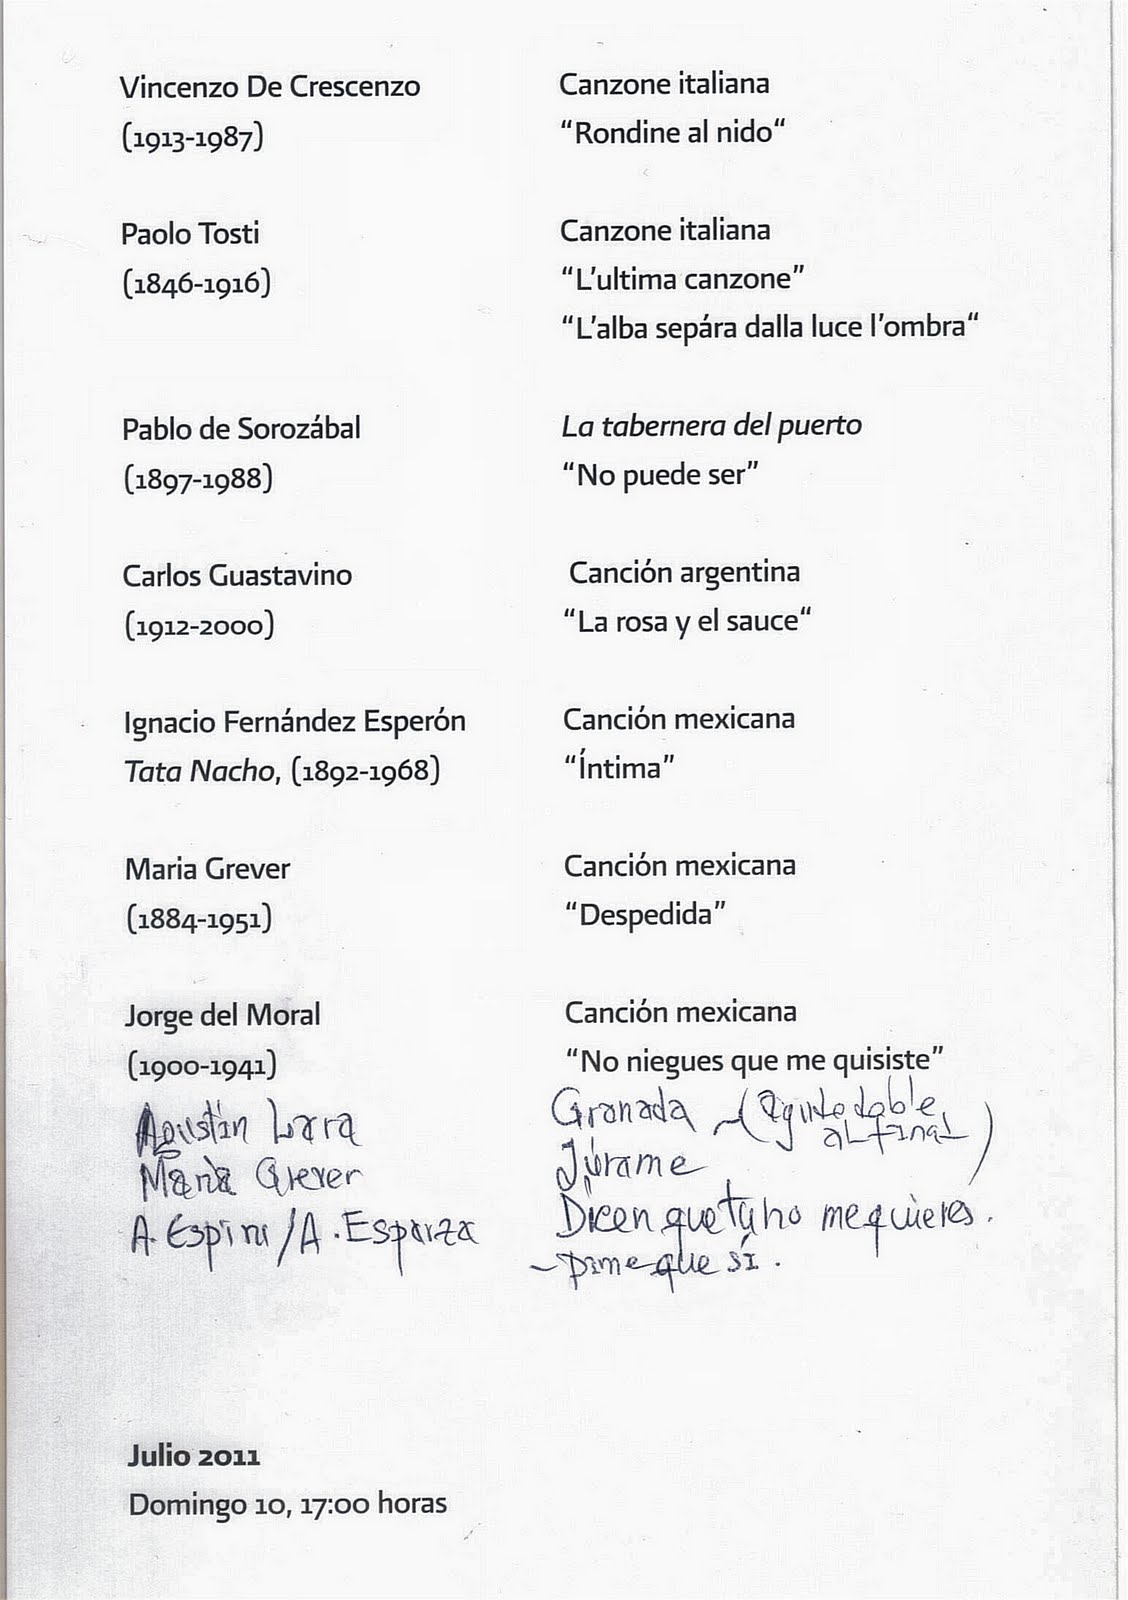 Vincenzo De Crescenzo
(1913-1987)
Canzone italiana
“Rondine al nido“
Paolo Tosti
(1846-1916)
Canzone italiana
“L’ultima canzone”
“L’alba sepára dalla luce l’ombra“
Pablo de Sorozábal
(1897-1988)
La tabernera del puerto
“No puede ser”
Carlos Guastavino
(1912-2000)
Canción argentina
“La rosa y el sauce“
Ignacio Fernández Esperón
Tata Nacho, (1892-1968)
Canción mexicana
“Íntima”
Maria Grever
(1884-1951)
Canción mexicana
“Despedida”
Jorge del Moral
(1900-1941)
Canción mexicana
“No niegues que me quisiste”
Agustín Lara
Granada (agudo doble
al final)
María Grever
Júrame
A. Esparza
Dicen que tú no me quieres.
- Dime que sí.
Julio 2011
Domingo 10, 17:00 horas